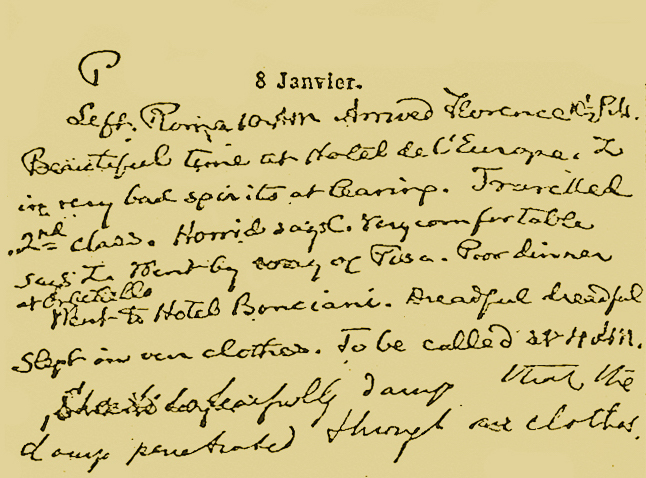 P
8 Janvier.
Left Roma 10 Arrived Florence 10½ P.M.
Beautiful time at Hotel de l'Europe. L
in very bad spirits at leaving. Travelled
2nd class. Horrid says C. Very comfortable
says L. Went by way of Pisa. Poor dinner
at
Went to Hotel Bonciani. Dreadful dreadful
Slept in our clothes. To be called at 4
fearfully damp that the
damp penetrated through our clothes.